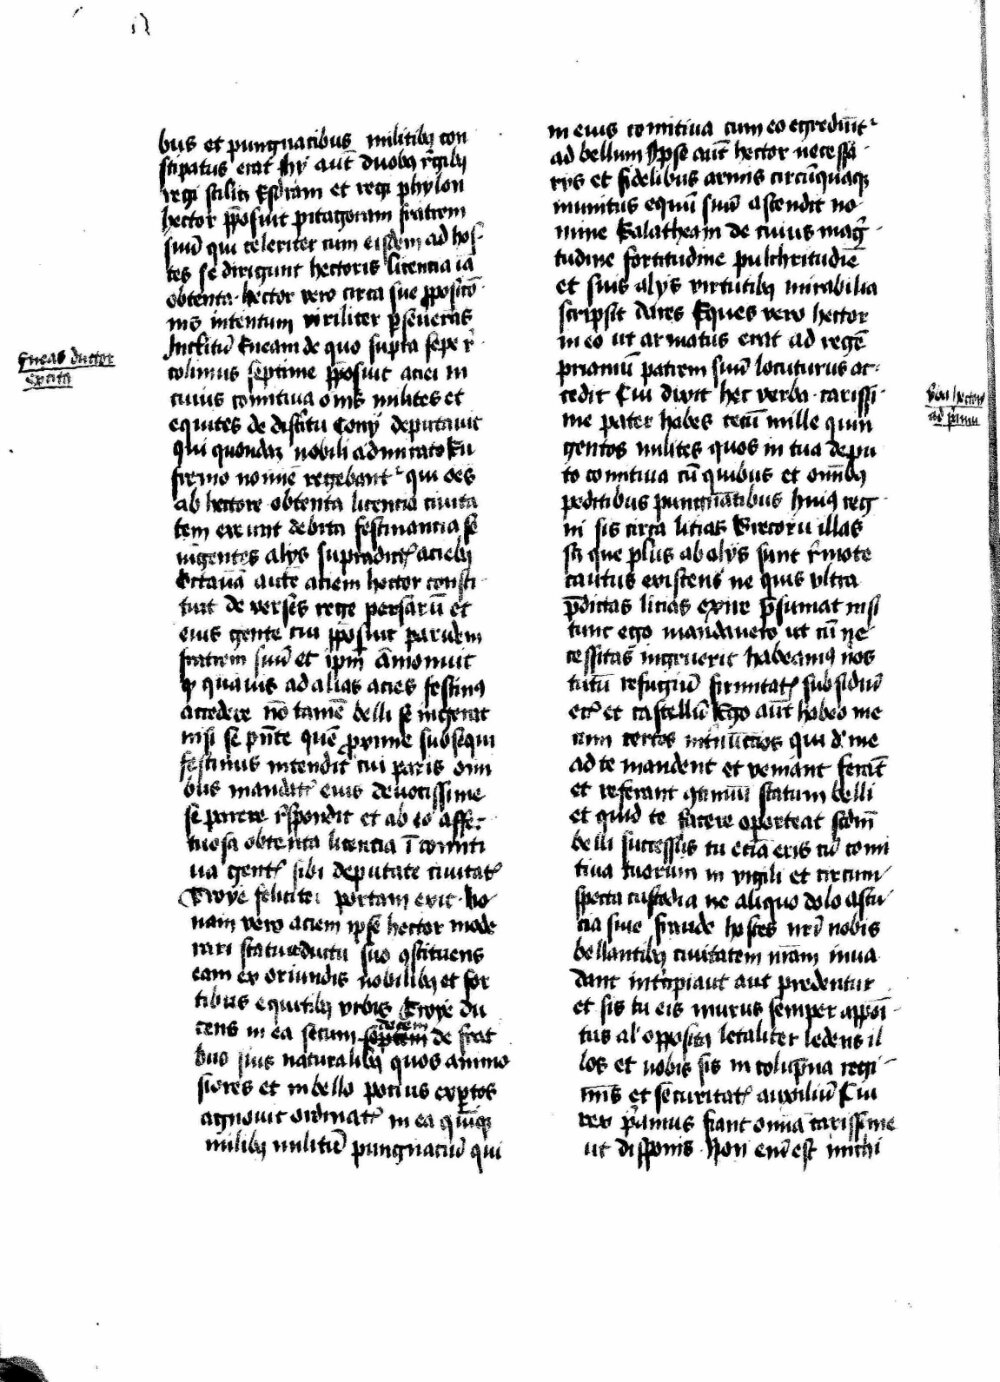 bus et pungnatibus militibꝫ con
stipatus erat Hijs aut̄ duobꝫ r̄gibꝫ
regi scilicꝫ Esdram et regi phylon
hector p̄posuit pitagoram fratrem
suū qui celeriter cum eisdem ad hos-
tes se dirigunt hectoris licencia iā
obtenta. hector vero circa sue p̄posicō
nis intentum viriliter p̄seuerās
Inclitū Eneam de quo supra sepe r̄
colimus septime p̄posuit aciei in
cuius comitiua om̄s milites et
equites de districtu Cony deputauit
qui quondaꝫ nobili admirato Eu
fremo nomine regebant̉ qui oēs
ab hectore obtenta licencia ciuita
tem exeunt debita festinancia se
iūgentes alijs supradictꝭ aciebꝫ
Octauā aute aciem hector consti
tuit de verses rege persarū et
eius gente cui p̄posuit paridem
fratrem suū et ip̄m āmonuit
qꝫ quauis ad alias acies festinꝰ
accedere nō tamē belli se ingerat
nisi se pn̄te quē proxime subsequi
festinus intendit cui paris om
bus mandatꝭ eius deuotissime
se parere r̄spondit et ab eo affec
tuosa obtenta licencia ī comiti
ua gentꝭ sibi deputate ciuitatꝭ
Troye feliciter portam exit. No
nam vero aciem ipse hector mode
rari statuit ductu suo ꝯstituens
eam ex oriundis nobilibꝫ et for
tibus equitibꝫ vrbis Troye du
cens in ea secum septem decem de frat
bus suis naturalibꝫ quos animo
siores et in bello pocius exꝑtos
agnouit ordinatꝭ in ea quinqꝫ
milibꝫ militū pungnaciū qui
in eius comitiua cum eo egrediūt̉
ad bellum Ipse aut̄ hector necessa
rijs et fidelibus armis circūquaqꝫ
munitus equū suū ascendit no
mine Galatheam de cuius maḡ
tudine fortitudine pulchritudiē
et suis alijs virtutibꝫ mirabilia
scripsit dares Eques vero hector
in eo ut armatus erat ad regē
priamū patrem suū locuturus ac-
cedit Cui dixit hec verba. carissi-
me pater habes tecū mille quin
gentos milites quos in tua depu
to comitiua cū quibus et om̄ibꝫ
peditibus pungnātibus huiꝰ reg-
ni sis circa licias Grecorū illas
scꝫ que plus ab alijs sunt r̄mote
cautus existens ne quis vltra
p̄dictas licias exire p̄sumat nisi
tunc ego mandauero ut cū ne
cessitas ingruerit habeamꝰ nos
tutū refugiū firmitatꝭ subsidiū
etꝭ et castellū Ego aut̄ habeo me
cum certos internūcios qui d̄ me
ad te mandent et veniant ferāt
et referant quantū statum belli
et quid te facere oporteat scdm̄
belli successus tu eciā eris cū comi
tiua tuorum in vigili et circum
specta custodia ne aliquo dolo astu
cia siue fraude hostes nr̄i nobis
bellantibꝫ ciuitatem nr̄am inua
dant int̉cipiant aut predentur
et sis tu eis murus semper appōi-
tus al' opposicꝫ letaliter ledens il
los et nobis sis in colūpna regi-
mīs et securitatꝭ auxiliū Cui
rex p̄amus fiant omīa carissime
ut disponis. Non enī est michi
Eneas ductor
exercita